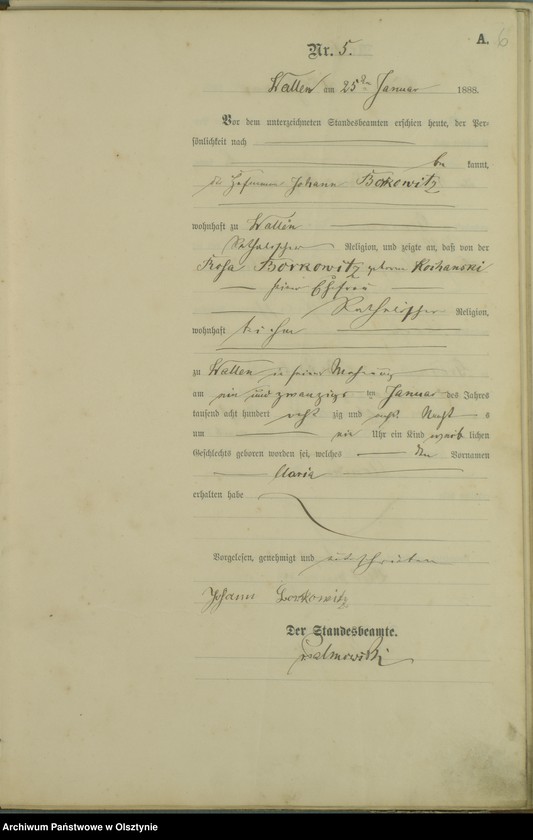 A. 6
Nr. 5.
Wallen am 25ten Januar 1888.
Vor dem unterzeichneten Standesbeamten erschien heute, der Per-
sönlichkeit nach
be kannt,
Johann Borkowitz
wohnhaft zu Wallen
Katholischer Religion, und zeigte an, daß von der
Rosa Borkowitz geborne Kochanski
seiner Ehefrau
Katholischer Religion,
wohnhaft bei ihm
zu Wallen in seiner Wohnung
am ein und zwanzigs ten Januar des Jahres
tausend acht hundert acht zig und acht Nacht s
um ein Uhr ein Kind weib lichen
Geschlechts geboren worden sei, welches den Vornamen
Maria
erhalten habe
Vorgelesen, genehmigt und unterschrieben
Johann Borkowitz
Der Standesbeamte.
Archiwum Państwowe w Olsztynie